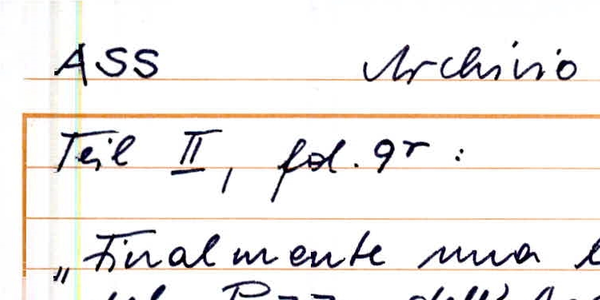 ASS Archivio
Teil II, fol. 9r:
„Finalmente una